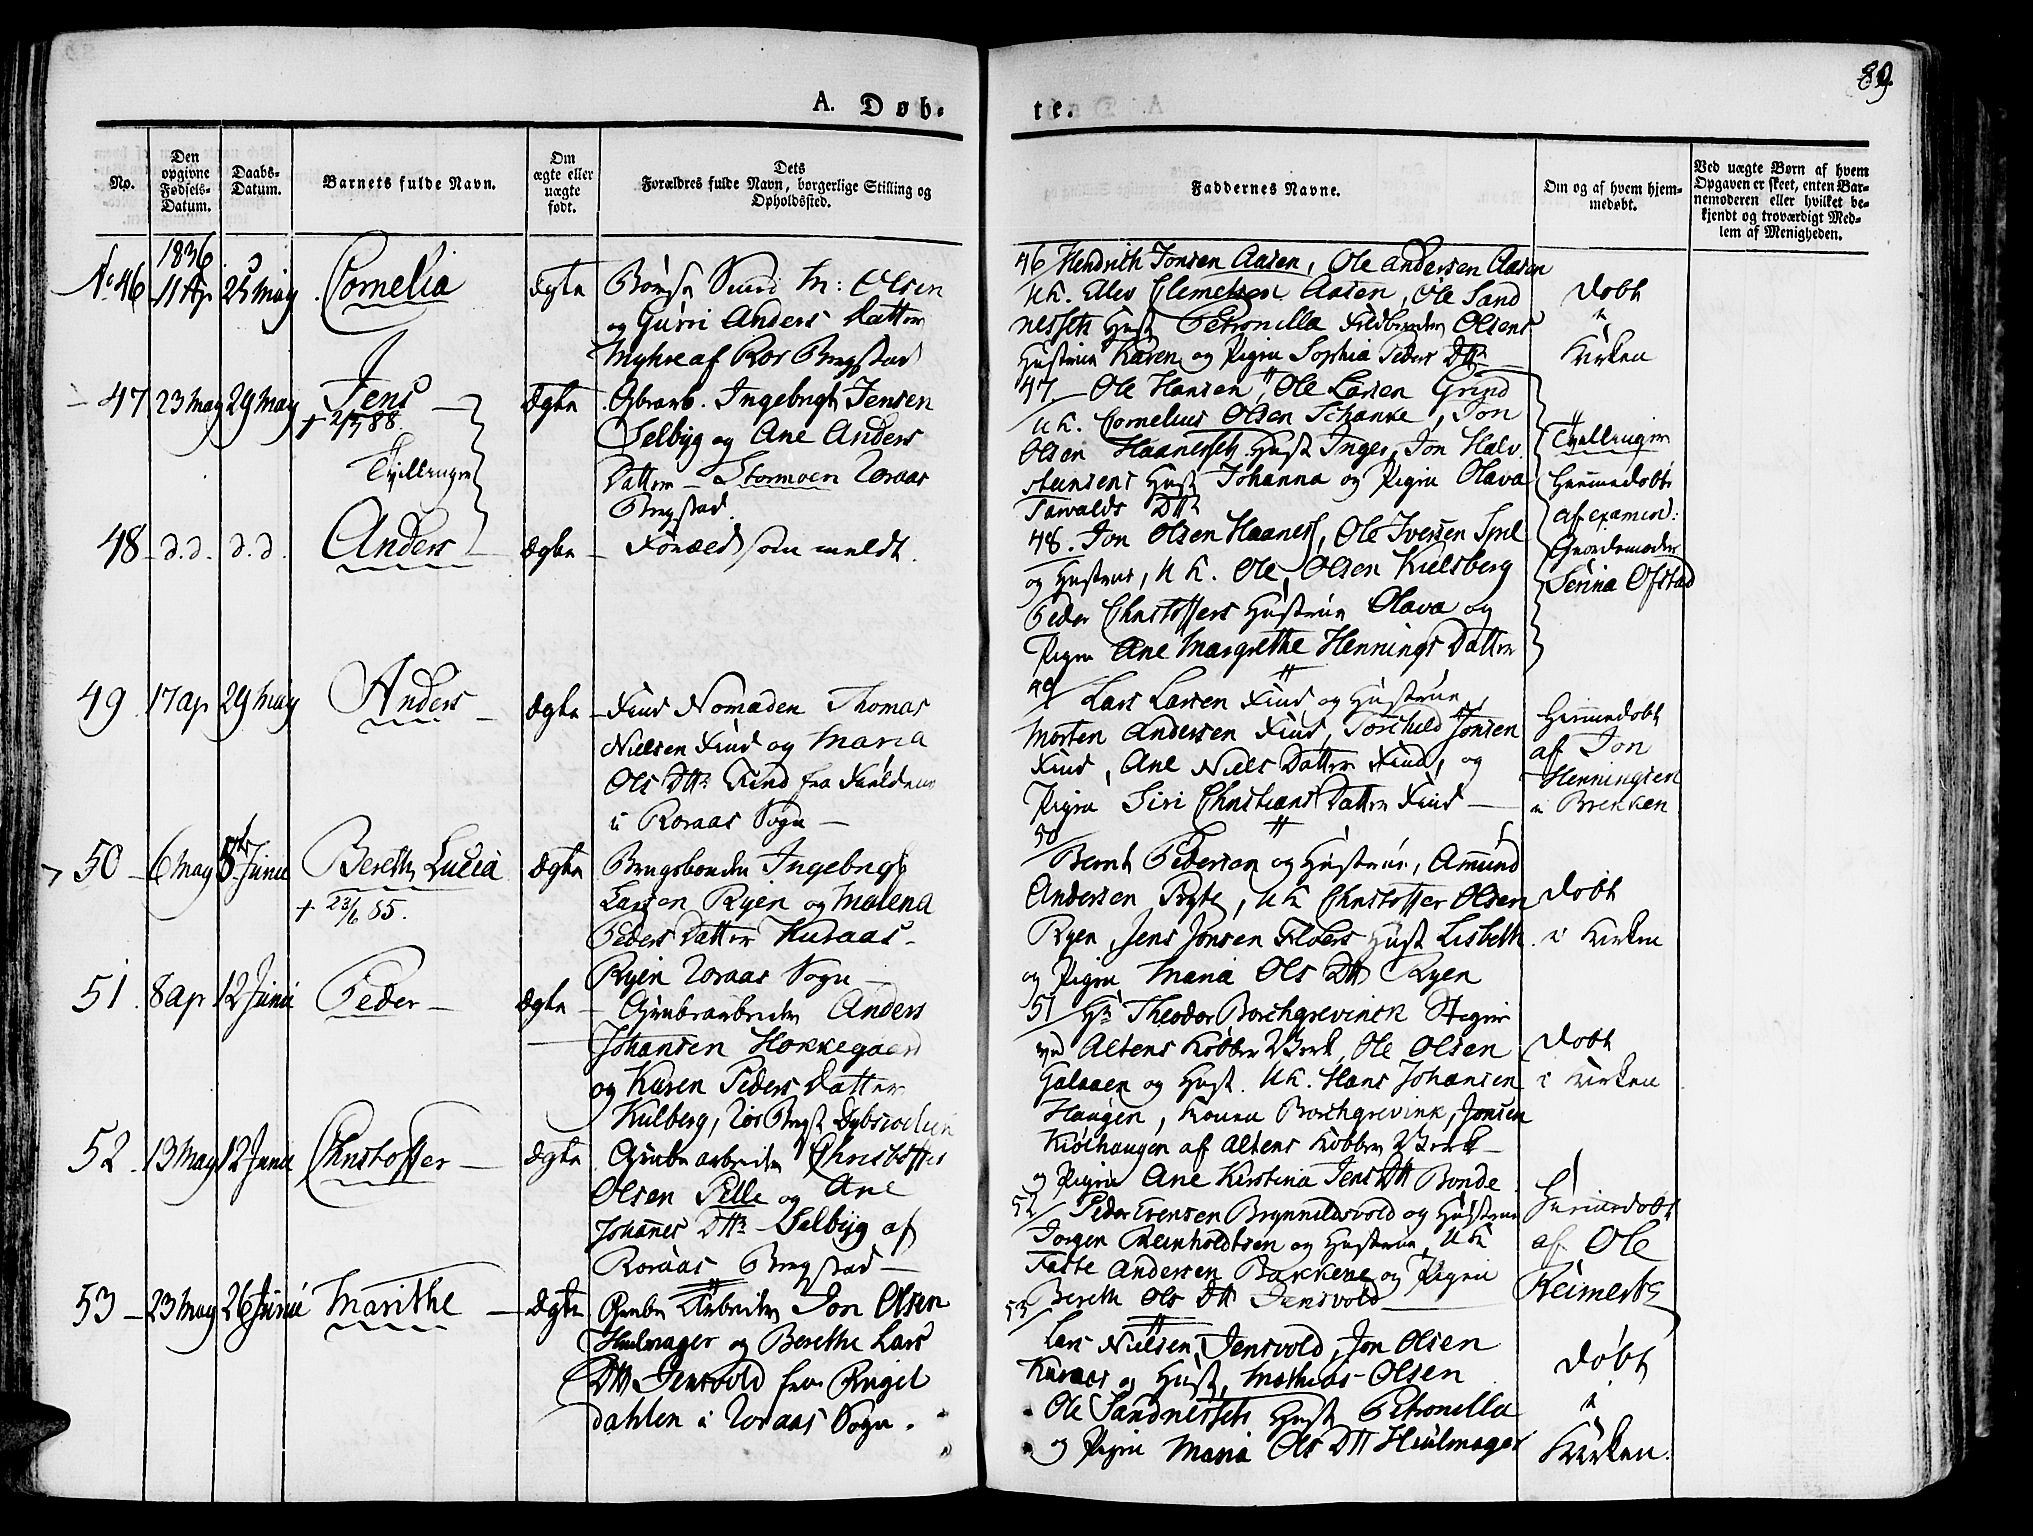 89.
A. Døb-
te.
No.
Den opgivne Fødsels-Datum.
Daabs-Datum.
Barnets fulde Navn.
Om ægte eller uægte født.
Dets Forældres fulde Navn, borgerlige Stilling og Opholdssted.
Faddernes Navne.
Om og af hvem hjemmedøbt.
Ved uægte Børn af hvem Opgaven er skeet, enten Barnemoderen eller hvilket bekjendt og troværdigt Medlem af Menigheden.
1836
No 46 11 Ap 25 May Cornelia ægte
M: Olsen
og Guri Anders Datter
Myhre af Ror Bergstad
46 Hendrich Jonsen Aasen, Ole Andersen Aasen
UK. Ellev Clemetsen Aasen, Ole Sand
nessets Hust Petronella Olsens
Hustrue Karen og Pigen Sophia Peders Dtr
døbt
i
Kirken
47 23 May 29 May Jens ægte
+ 2/7 88.
Tvillinger
Ingebrigt Jensen
Selbyg og Ane Anders
Datter - Stormoen Roraas
Bergstad.
47. Ole Hansen, Ole Larsen Grind
UK. Cornelius Olsen Schanke, Jon
Olsen Haanessets Hust Inger, Jon Halv
steensens Hust Johanna og Pigen Olava
Tarvalds Dtr
Tvillinger
Hiemmedøbt
af examin:
Giordemoder
Serina Ofstad
48 d.d. d.d. Anders ægte
Foræld som meldt.
48. Jon Olsen Haaness, Ole Iversen
og Hustrue, UK. Ole Olsen Kielsberg
Peder Christoffers Hustrue Olava og
Pigen Ane Margrethe Hennings Datter
49 17 ap 29 May Anders ægte
Find Nomaden Thomas
Nielsen Find og Maria
Ols Dtr Find fra Fieldene
i Roraas Sogn
49 Lars Larsen Find og Hustrue
Morten Andersen Find, Torchild Jonsen
Find, Ane Niels Datter Find, og
Pigen Siri Christians Datter Find
Hiemmedøbt
af Jon
Henningsen
i Brekken
50 6 May 5te Junii Bereth Lucia ægte
+ 23/6 85.
Brugsbonden Ingebrigt
Larsen Ryen og Malena
Peders Datter Kuraas
Ryen Roraas Sogn
50 Bernt Pedersen og Hustrue, Amund
Andersen, UK Christoffer Olsen
Ryen, Jens Jonsen Floers Hust Lisbeth
og Pigen Maria Ols Dtr Ryen
døbt
i Kirken
51 8 ap 12 Junii Peder ægte
Grubearbeider Anders
Johansen Hokkegaard
og Karen Peders Datter
Kulberg, Ror Bergst
51 Hr Theodor Borchgrevinck Stiger
ved Altens Kobber Verk, Ole Olsen
Galaaen og Hust. UK. Hans Johansen
Haugen, Borchgrevink, Jonsen
Kiolhaugen af Altens Kobber Verk
og Pigen Ane Kirstina Jens Dtr Bonde
døbt
i Kirken
52. 13 May 12 Junii Christoffer ægte
Grubearbeider Christoffer
Olsen Pelle og Ane
Johannes Dtr Selbyg af
Roraas Bergstad
52 Peder Evensen Brynnildsvold og Hustrue
Jorgen Reinholdtsen og Hustrue, UK
Faste Andersen Bakkene og Pigen
Bereth Ols Dtr Jensvold
Hiemmedøbt
af Ole
Reimerts
53 23 May 26 Junii Marithe ægte
Grube Arbeider Jon Olsen
Hiulmager og Berethe Lars
Dtr Jensvold fra Rugel
dahlen i Roraas Sogn.
53 Lars Nielsen Jensvold, Jon Olsen
Kuraas og Hust, Mathias Olsen
Ole Sandnessets Hust Petronella
og Pigen Maria Ols Dtr Hiulmager
døbt
i
Kirken.